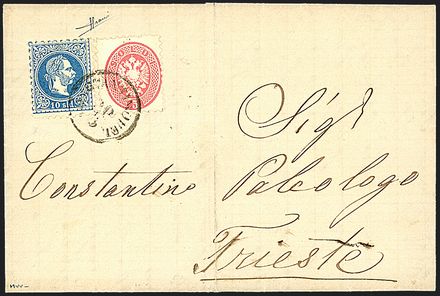 10 sld
Sigr
Constantino Paleologo
Trieste